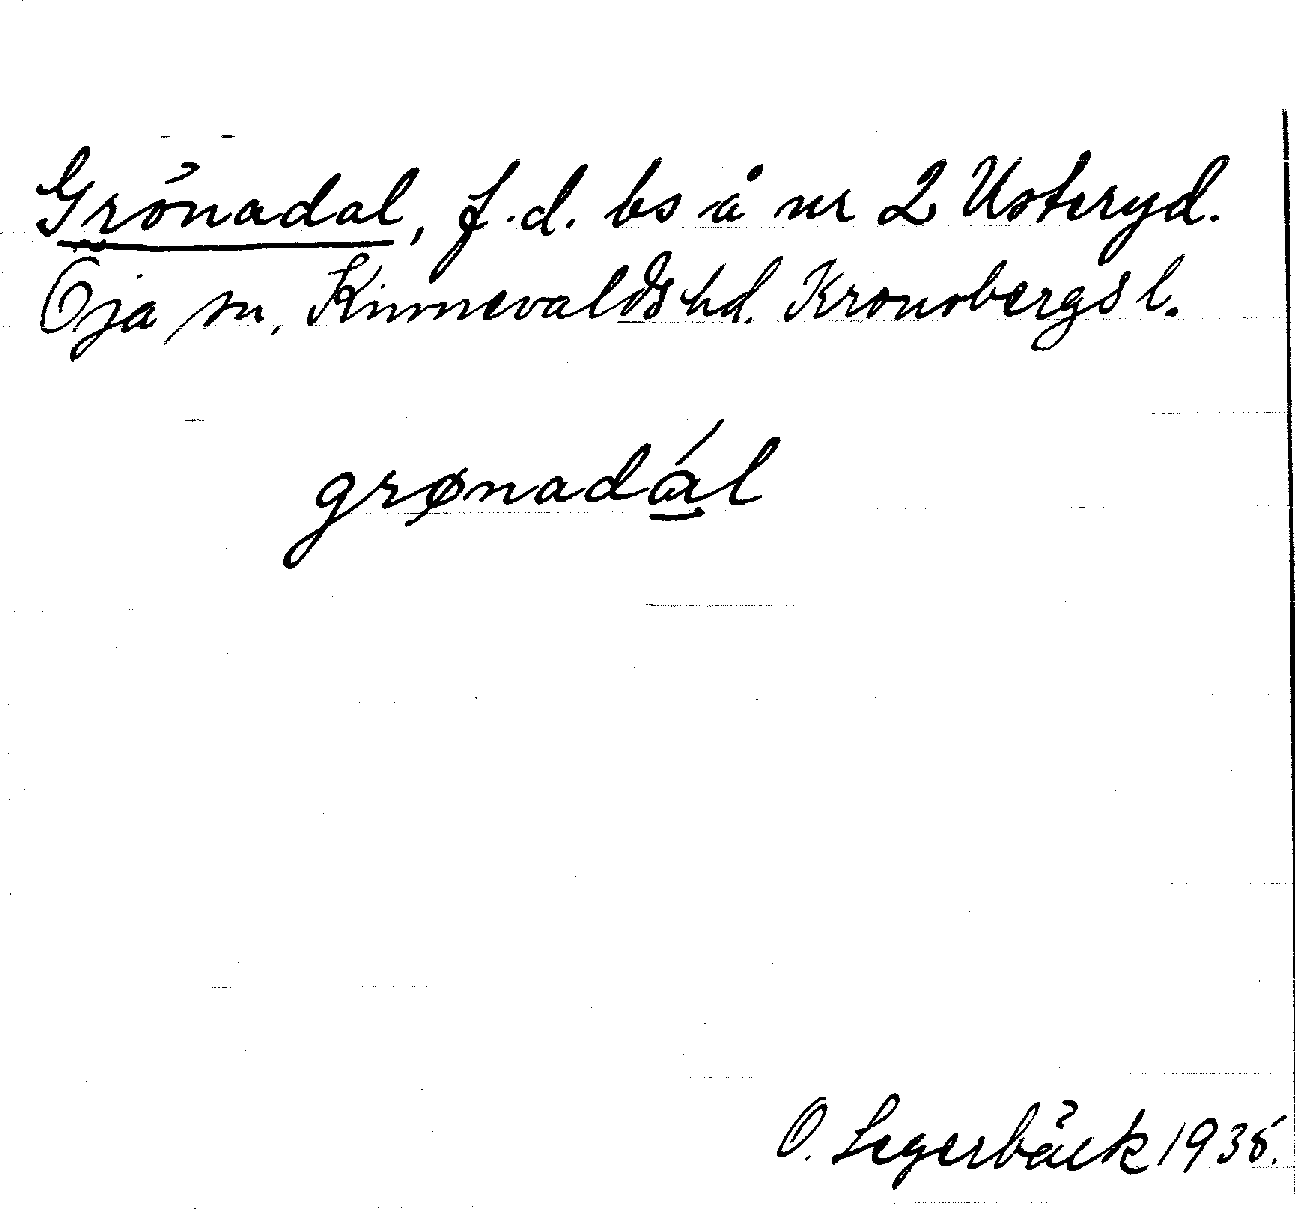 Grönadal, f.d. bs å nr 2 Usteryd.
Öja sn, Kinnevalds hd. Kronobergs l.
grønadá̲l
O. Segerbäck 1935.